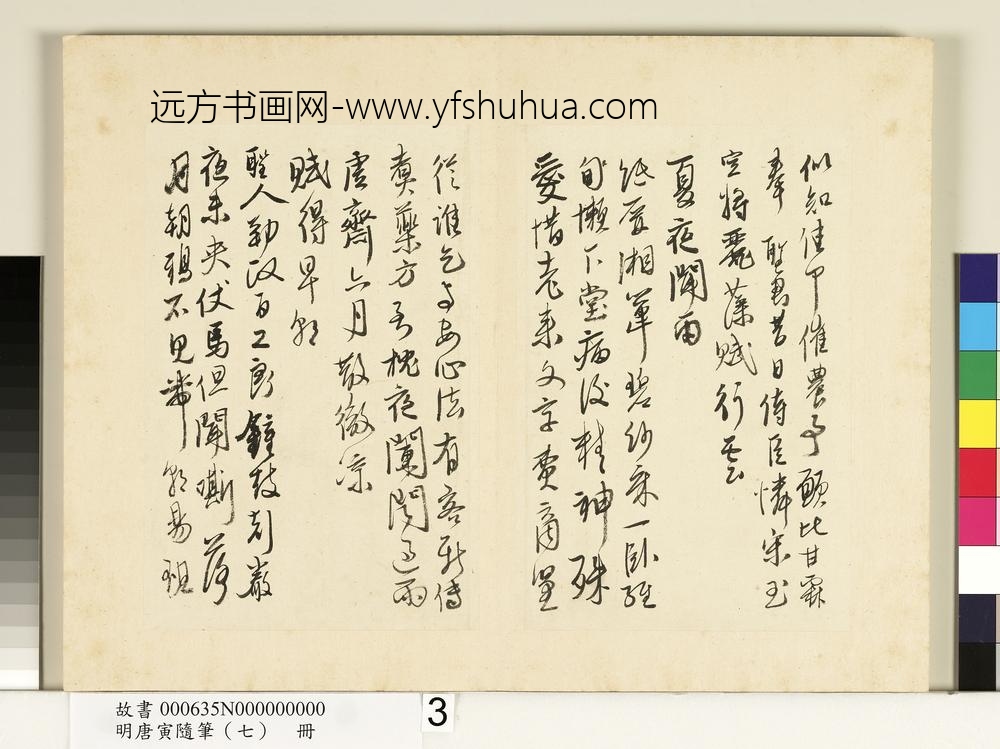 远方书画网-www.yfshuhua.com
似知佳甲催農事願比甘霖
奉聖君昔日侍臣憐宋玉
空將麗藻賦行雲
夏夜聞雨
紙屋湘簟碧紗㡩一臥經
旬懶下堂病後精神殊
愛惜老來文字費商量
從誰乞与安心法有客新傳
煮藥方呑枕夜闌聞過雨
虛齋六月散微涼
賦得早朝
聖人勤政百工郎鐘鼓刻嚴
夜未央伏馬但聞嘶荷
月朝鴉不見帶朝易
故書 000635N000000000
明唐寅隨筆（七） 冊
3